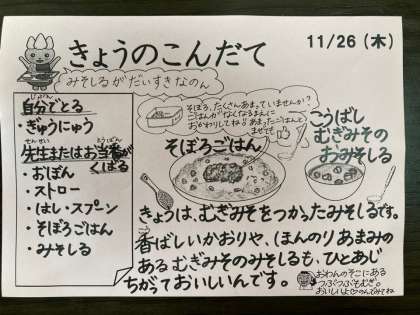 きょうのこんだて
11/26 (木)
みそしるがだいすきなのん
じぶん
自分でとる
・ぎゅうにゅう
せんせい とうばん
先生またはお当番が
くばる
・おぼん
・ストロー
・はし・スプーン
・そぼろごはん
・みそしる
そぼろ、たくさんあまっていませんか？
ごはんがなくなるまえに
おかわりしてね！あまったごはんに
まぜても
そぼろごはん
こうばし
むぎみその
おみそしる
きょうは、むぎみそをつかったみそしるです。
香ばしいかおりや、ほんのりあまみの
あるむぎみそのみそしるも、ひとあじ
ちがっておいしいんです。
おわんのそこにある
つぶつぶもむぎ。
おいしいよ♡のんでみてね